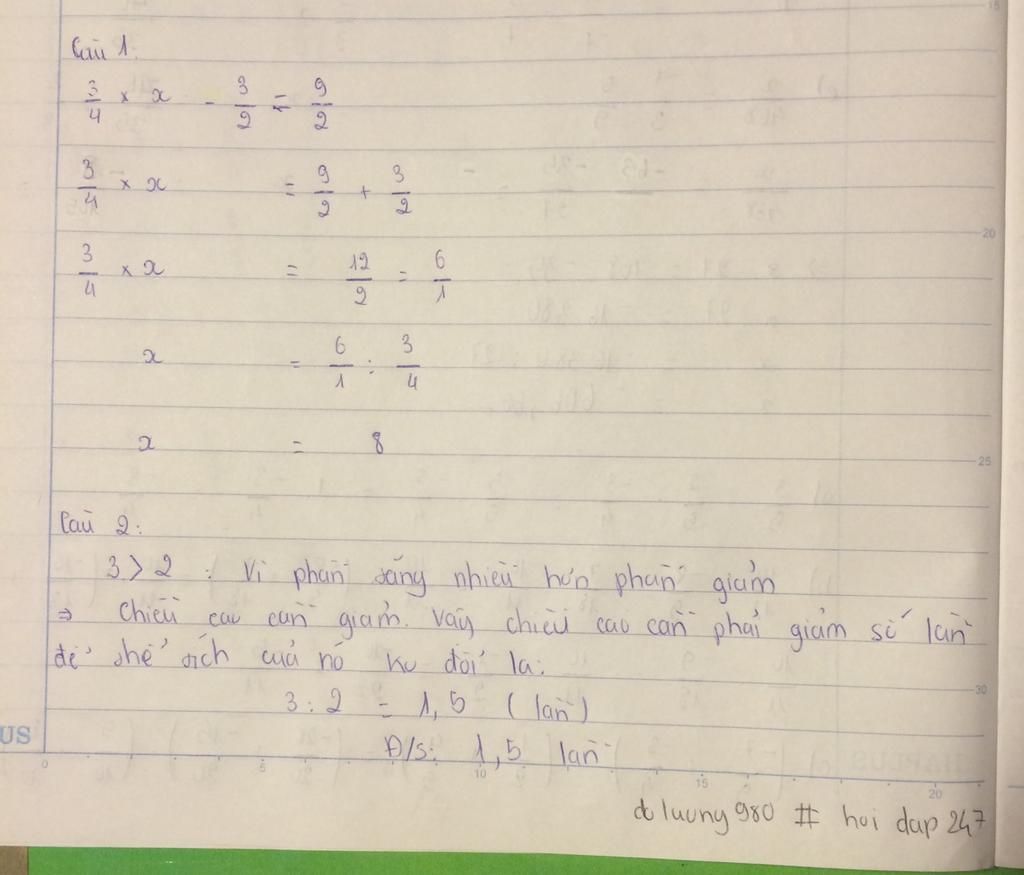 Câu 1:
3/4 × x - 3/2 = 9/2
3/4 × x = 9/2 + 3/2
3/4 × x = 12/2 = 6/1
x = 6/1 : 3/4
x = 8
Câu 2:
3 > 2 : Vì phần tăng nhiều hơn phần giảm
⇒ Chiều cao cần giảm. Vậy chiều cao cần phải giảm số lần
để thể tích của nó ko đổi là:
3 : 2 = 1,5 (lần)
Đ/s: 1,5 lần
dtluong980 # hoidap247
US
15
20
25
30
0 5 10 15 20